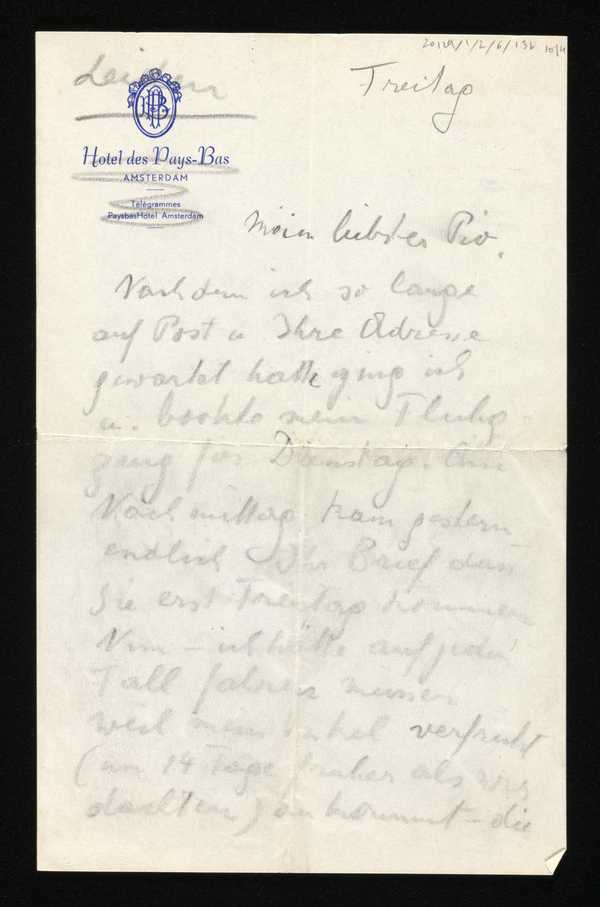 20129/1/2/6/136 10/4
Leiden
Freitag
HPB
Hotel des Pays-Bas
AMSTERDAM
Télégrammes
PaysbasHôtel Amsterdam
Mein liebster Pio,
Nachdem ich so lange
auf Post u Ihre Adresse
gewartet hatte ging ich
u. bookte mein Flug
zeug für Dienstag. Am
Nachmittag kam gestern
endlich Ihr Brief dass
Sie erst Freitag kommen
Nun – ich hätte auf jeden
Fall fahren müssen
weil mein Enkel verfrüht
(um 14 Tage früher als wir
dachten) ankommt – die